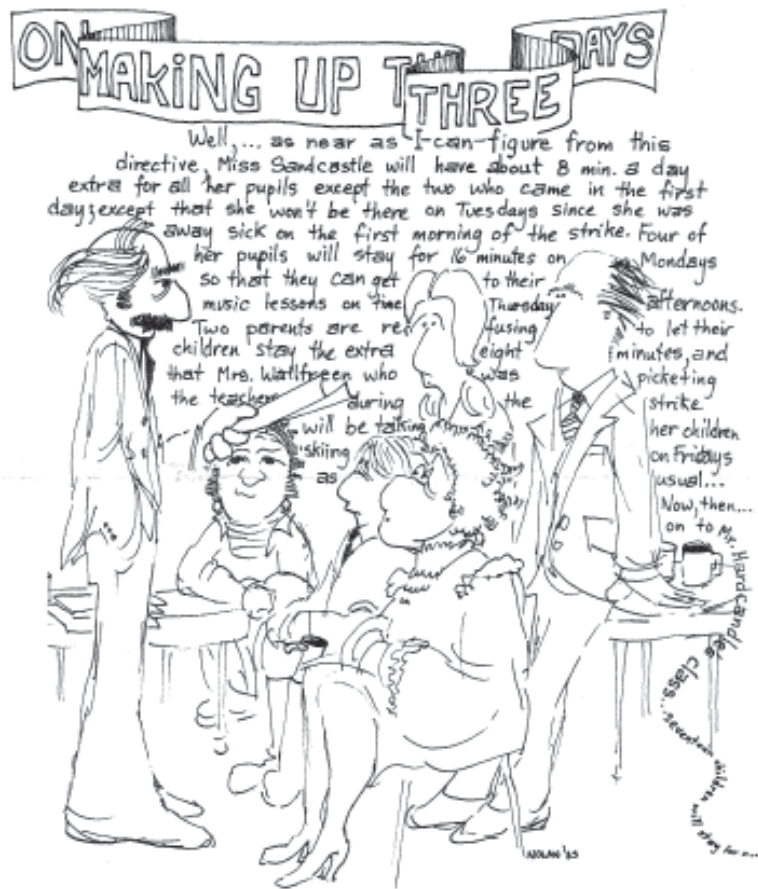 ON MAKING UP TH THREE DAYS
Well,... as near as I-can-figure from this
directive, Miss Sandcastle will have about 8 min. a day
extra for all her pupils except the two who came in the first
day; except that she won't be there on Tuesdays since she was
away sick on the first morning of the strike. Four of
her pupils will stay for 16 minutes on Mondays
so that they can get to their
music lessons on time Thursday afternoons.
Two parents are refusing to let their
children stay the extra eight minutes, and
that Mrs. Wallfreen who was picketing
the teachers during the strike
will be taking her children
skiing on Fridays
as usual...
Now, then...
on to Mr. Hardcandle's class... seventeen children will stay for a...
NOLAN '85